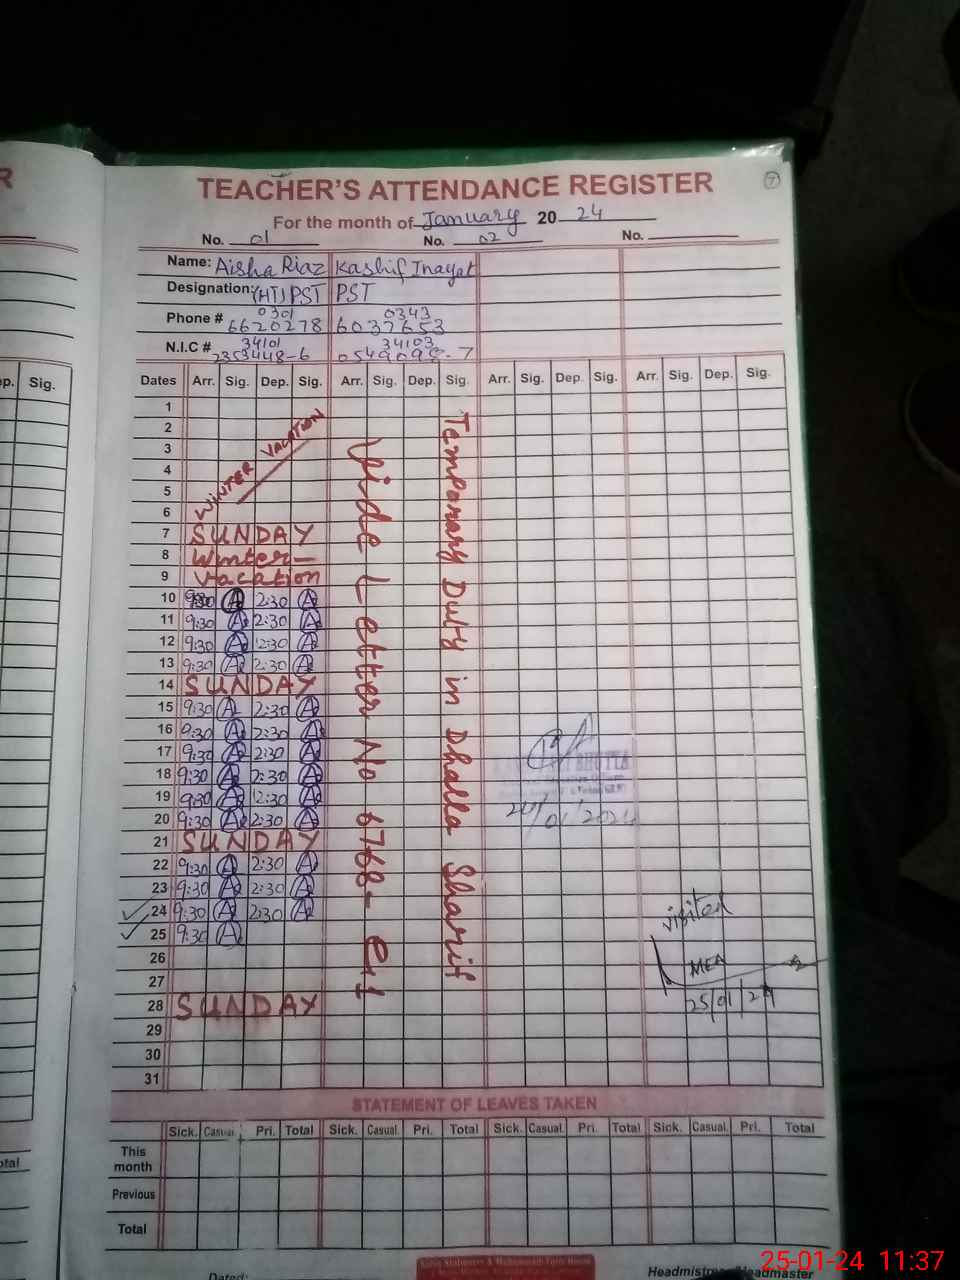 R
TEACHER'S ATTENDANCE REGISTER
7
For the month of January 20 24
No. 01 No. 02 No.
Name: Aisha Riaz Kashif Inayat
Designation: (HT) PST PST
Phone # 0301 6620278 0343 6037653
N.I.C # 34101 2353448-6 34103 0549098-7
ep. Sig.
Dates Arr. Sig. Dep. Sig. Arr. Sig. Dep. Sig. Arr. Sig. Dep. Sig. Arr. Sig. Dep. Sig.
1
2
3
4
5
6
WINTER VACATION
7 SUNDAY
8 Winter-
9 Vacation
10 9:30 A 2:30 A
11 9:30 A 2:30 A
12 9:30 A 2:30 A
13 9:30 A 2:30 A
14 SUNDAY
15 9:30 A 2:30 A
16 9:30 A 2:30 A
17 9:30 A 2:30 A
18 9:30 A 2:30 A
19 9:30 A 2:30 A
20 9:30 A 2:30 A
21 SUNDAY
22 9:30 A 2:30 A
23 9:30 A 2:30 A
24 9:30 A 2:30 A
25 9:30 A
26
27
28 SUNDAY
29
30
31
Vide Letter No 6768-
Temporary Duty in Dhalla Sharif
BHUTTA
20/01/2024
visited
MEA
25/01/24
STATEMENT OF LEAVES TAKEN
Sick. Casual. Pri. Total Sick. Casual. Pri. Total Sick. Casual. Pri. Total Sick. Casual. Pri. Total
This month
Previous
Total
otal
Dated:
Headmistress/Headmaster
25-01-24 11:37